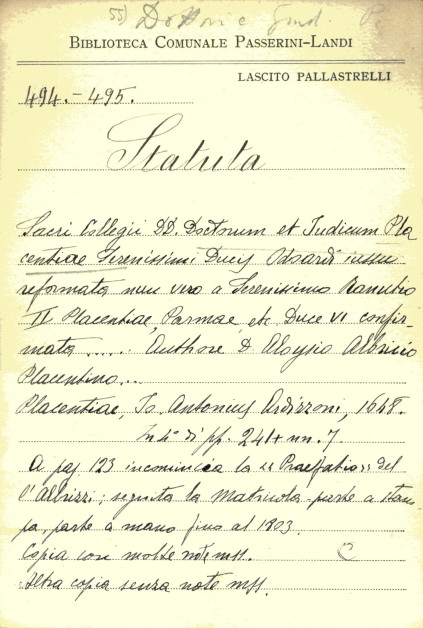 55) Dottori e Giud. P.
BIBLIOTECA COMUNALE PASSERINI-LANDI
LASCITO PALLASTRELLI
494.-495.
Statuta
Sacri Collegii DD. Doctorum et Judicum Pla
centiae Serenissimi Ducis Odoardi iussu
reformata nunc vero a Serenissimo Ranutio
II Placentiae, Parmae, et. Duce VI confir-
mata ..... Authore D Aloysio Albricio
Placentino...
Placentiae, Jo. Antonius Ardizzoni, 1648.
In 4° di pp. 241+nn. 7.
A pag 123 incomincia la "Praefatio" del
l'Albrizzi; seguita la Matricola parte a stam-
pa, parte a mano fino al 1803.
Copia con molte note mss.
Altra copia senza note mss.